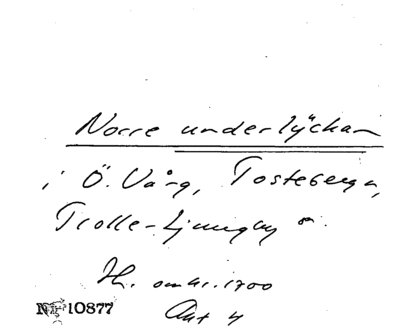 Norre underlyckan
i Ö. Vång, Tosteberga,
Trolle-Ljungby sn.
Hr. omkr. 1700
Akt 4
Nr 10877